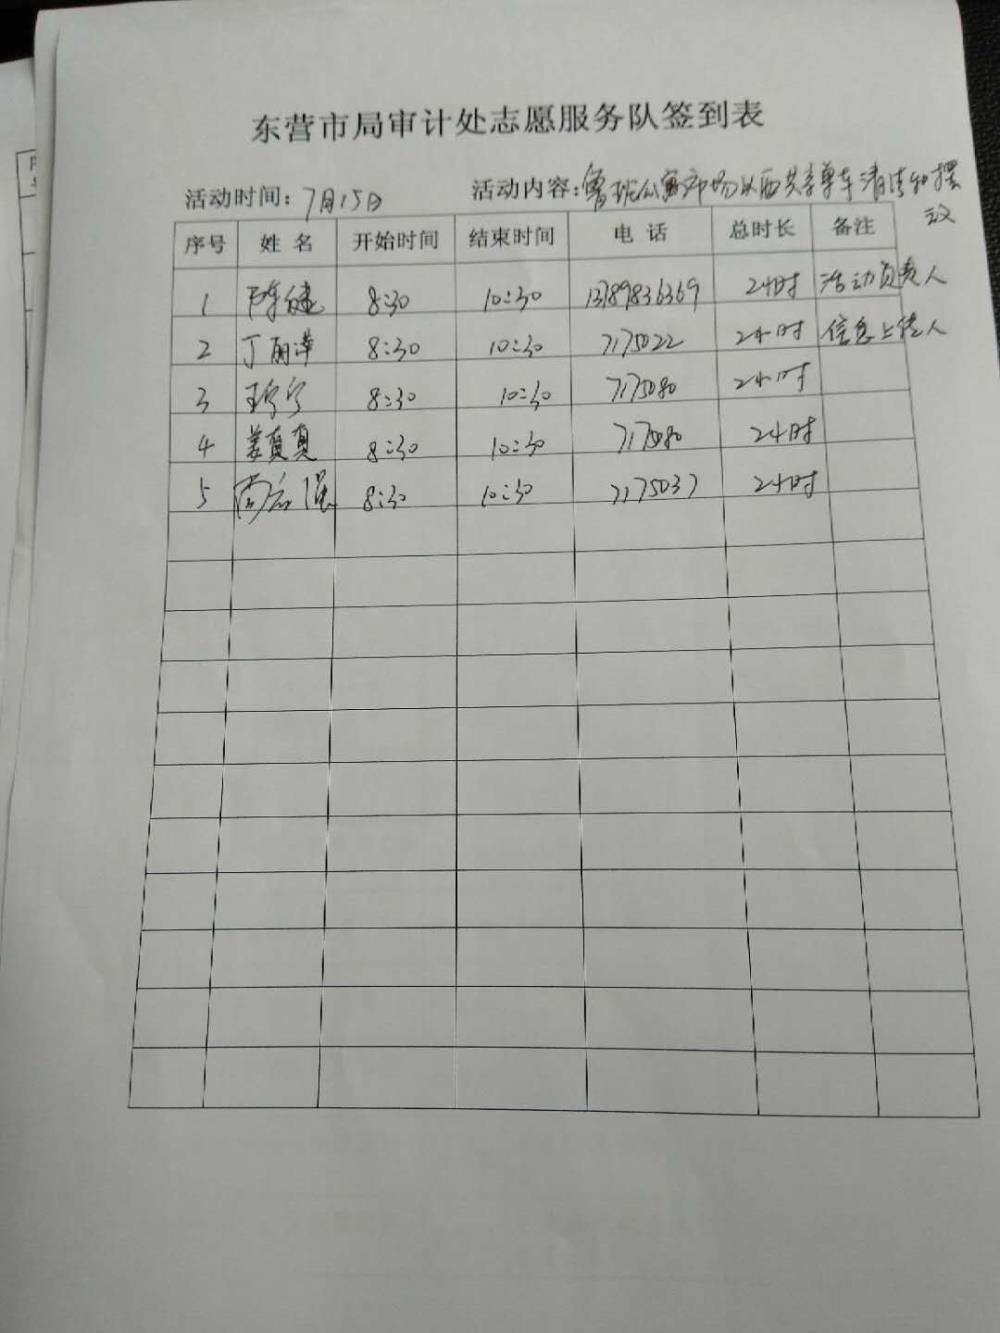 东营市局审计处志愿服务队签到表
活动时间：7月15日 活动内容：鲁班公寓市场以西共享单车清洁和摆放
序号 姓名 开始时间 结束时间 电话 总时长 备注
1 陈健 8:30 10:30 13789836369 2小时 活动负责人
2 丁雨萍 8:30 10:30 7175022 2小时 信息上传人
3 王宁宁 8:30 10:30 7175080 2小时
4 姜真真 8:30 10:30 7175080 2小时
5 尚志强 8:30 10:30 7175037 2小时